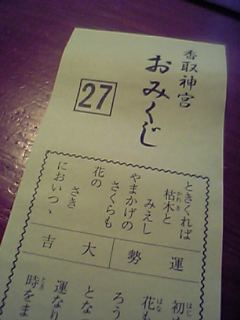 香取神宮
おみくじ
27
ときくれば
枯木と
かれき
みえし
やまかげの
さくらも
花の
さき
においつゝ
運勢
大吉
初
はじ
花も
はな
ろう
とな
運なり
時をま
とき